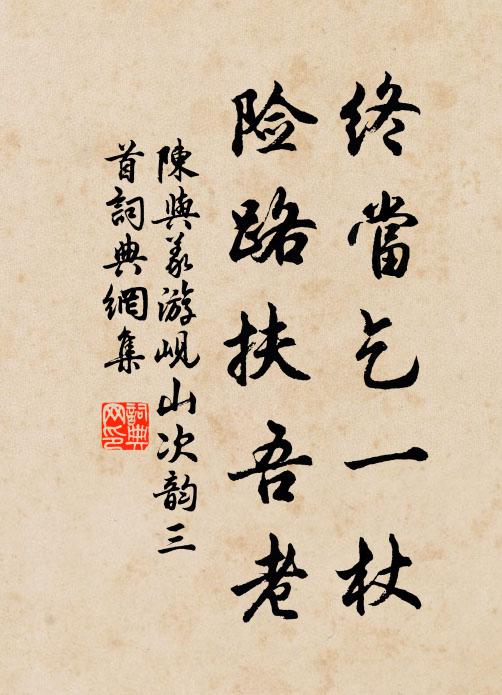 終當乞一杖
险路扶吾老
陳與義游峴山次韵三
首詞典網集
詞典网印